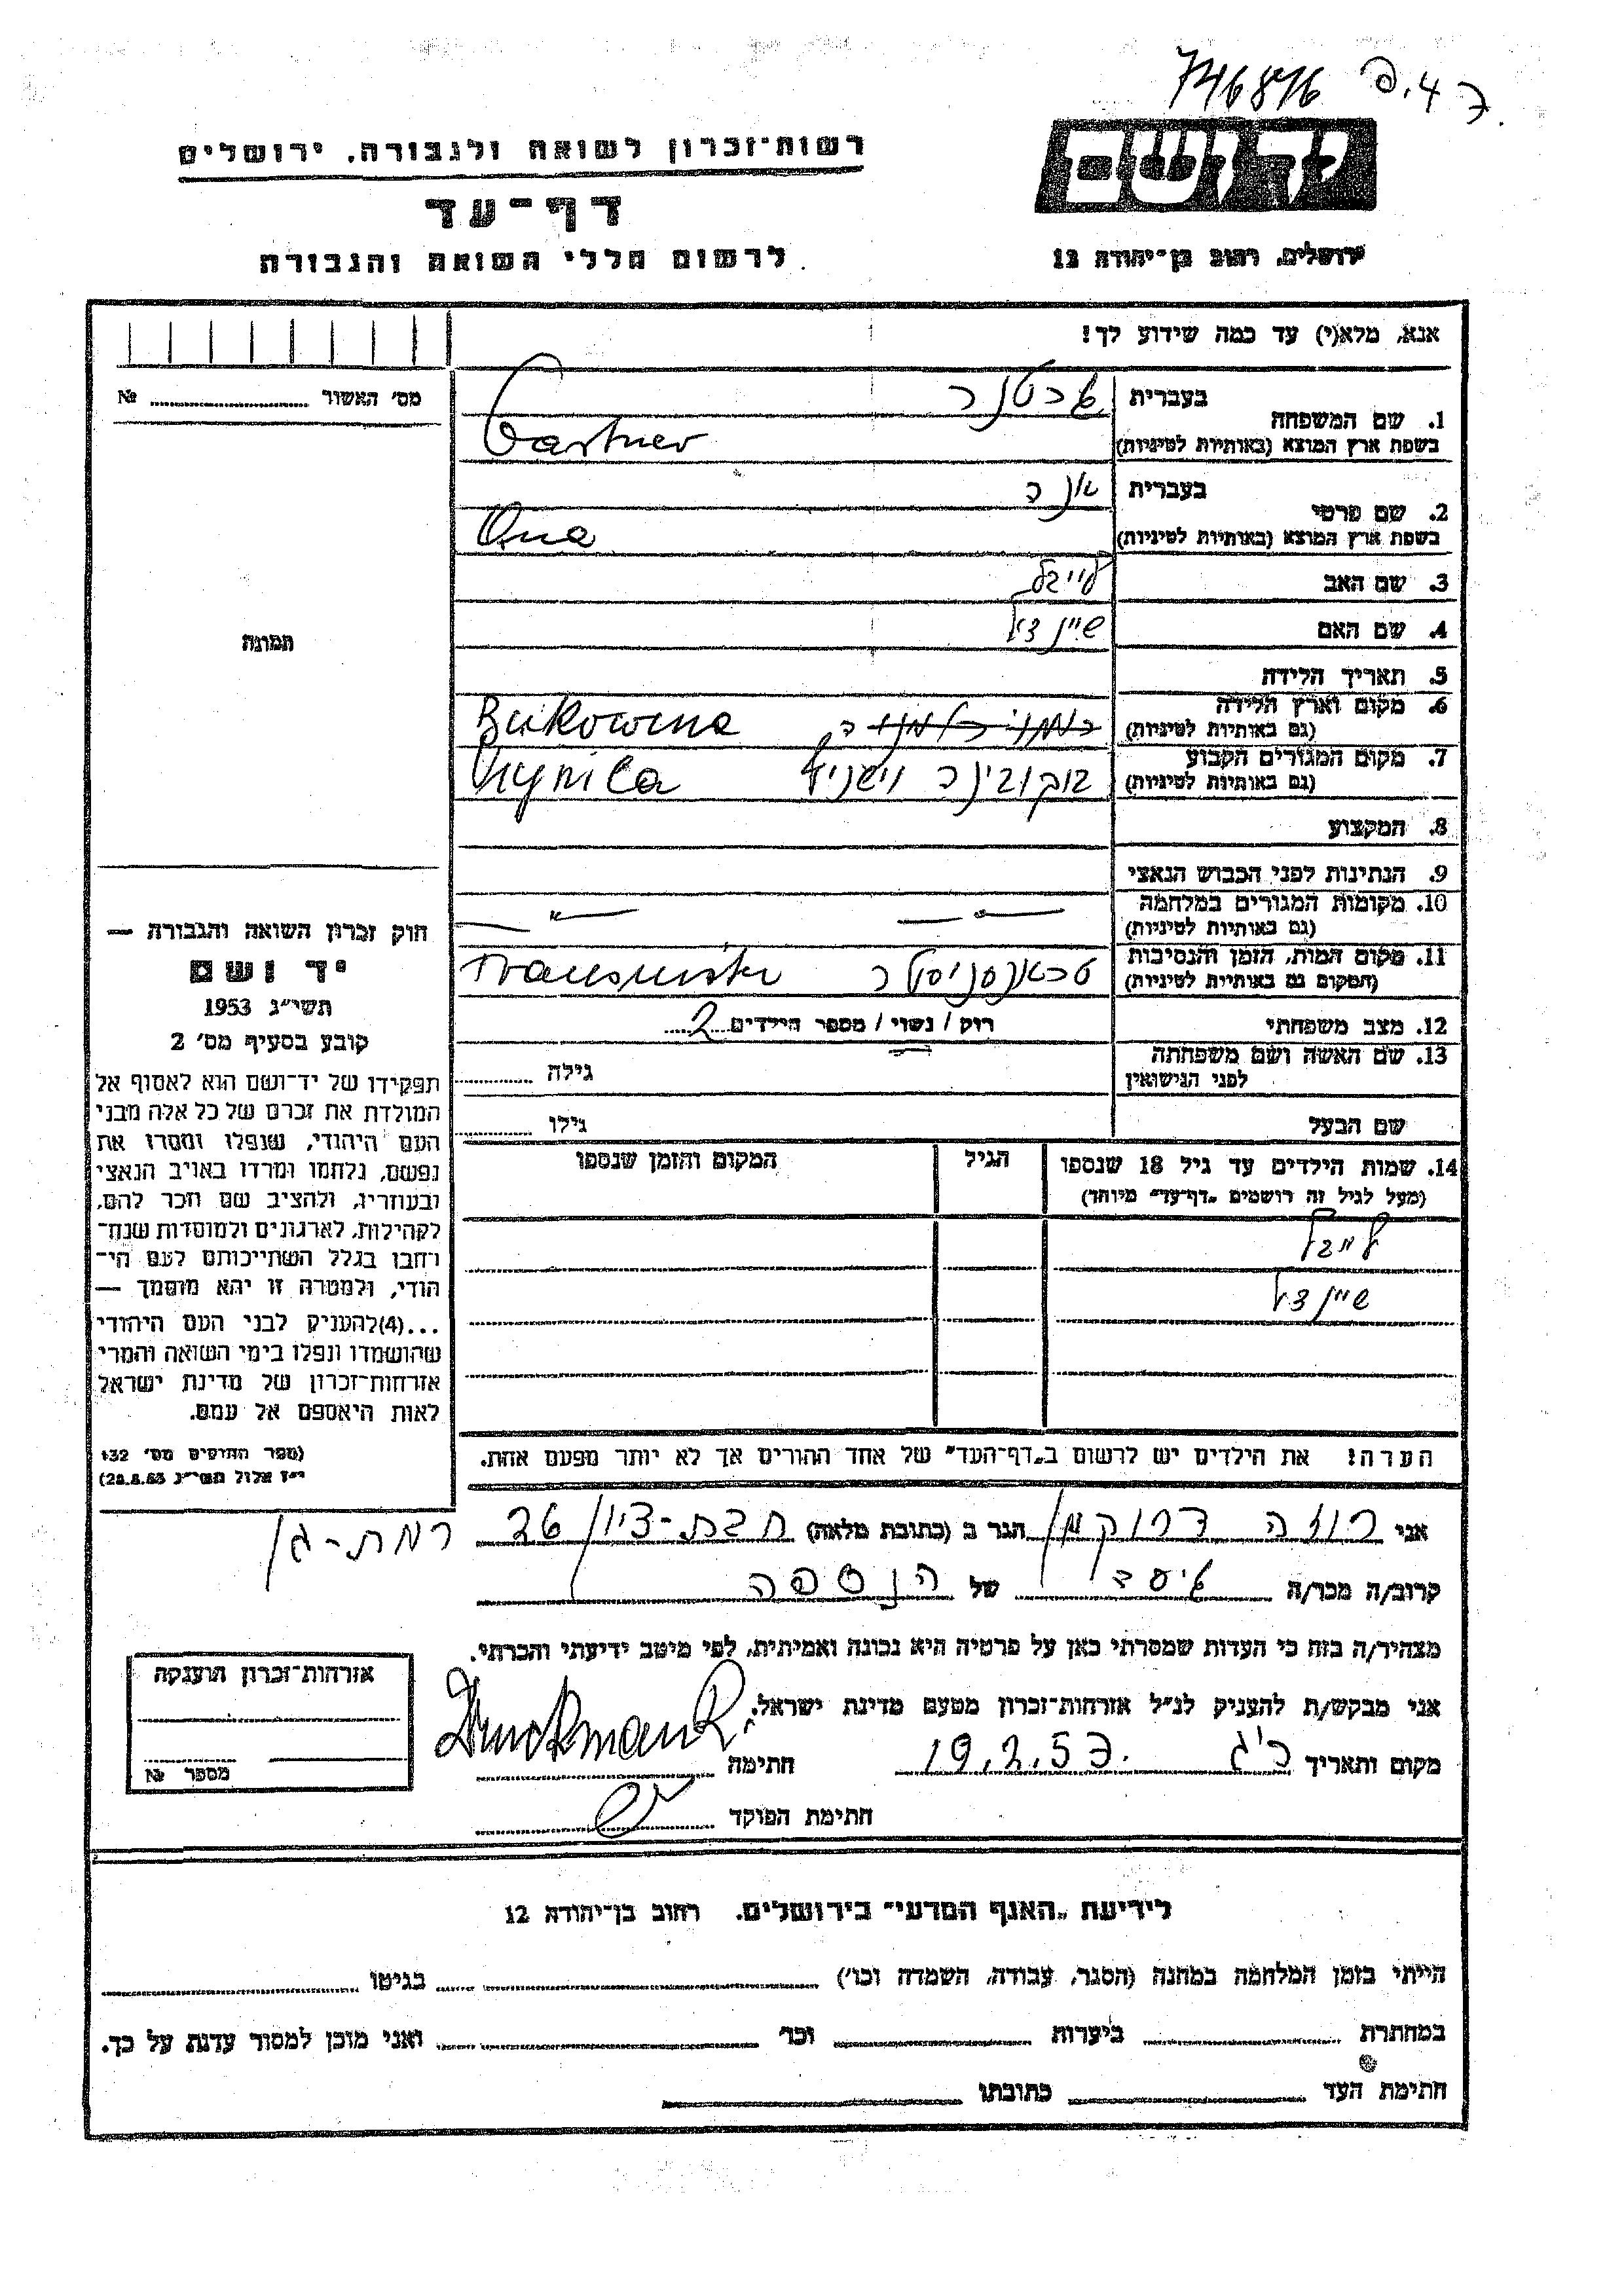 746876
רשות-זכרון לשואה ולגבורה, ירושלים
דף-עד
לרשום חללי השואה והגבורה
יד ושם
ירושלים, רחוב בן-יהודה 12
אנא, מלא(י) עד כמה שידוע לך!
מס' האשור № ..........
1. שם המשפחה
בעברית גרטנר
בשפת ארץ המוצא (באותיות לטיניות) Gartner
2. שם פרטי
בעברית אנה
בשפת ארץ המוצא (באותיות לטיניות) Ana
3. שם האב לייבל
4. שם האם שיינדל
5. תאריך הלידה
6. מקום וארץ הלידה
(גם באותיות לטיניות) Bukowina
7. מקום המגורים הקבוע
(גם באותיות לטיניות) בוקובינה
8. המקצוע
9. הנתינות לפני הכבוש הנאצי
10. מקומות המגורים במלחמה
(גם באותיות לטיניות)
11. מקום המות, הזמן והנסיבות
(המקום גם באותיות לטיניות)
12. מצב משפחתי רוק / נשוי / מספר הילדים 2
13. שם האשה ושם משפחתה
לפני הנישואין גילה
שם הבעל גילו
14. שמות הילדים עד גיל 18 שנספו הגיל המקום והזמן שנספו
(מעל לגיל זה רושמים "דף-עד" מיוחד)
לייבל
שיינדל
הערה! את הילדים יש לרשום ב"דף-העד" של אחד ההורים אך לא יותר מפעם אחת.
תמונה
חוק זכרון השואה והגבורה —
יד ושם
תשי"ג 1953
קובע בסעיף מס' 2
תפקידו של יד-ושם הוא לאסוף אל
המולדת את זכרם של כל אלה מבני
העם היהודי, שנפלו ומסרו את
נפשם, נלחמו ומרדו באויב הנאצי
ובעוזריו, ולהציב שם וזכר להם,
לקהילות, לארגונים ולמוסדות שנח-
רבו בגלל השתייכותם לעם הי-
הודי, ולמטרה זו יהא מוסמך —
...(4)להעניק לבני העם היהודי
שהושמדו ונפלו בימי השואה והמרי
אזרחות-זכרון של מדינת ישראל
לאות היאספם אל עמם.
(ספר החוקים מס' 132
י"ז אלול תשי"ג 28.8.53)
אני רוזה דרוקמן הגר ב (כתובת מלאה) חבת-ציון 26 רמת-גן
קרוב/ה מכר/ה של הנספה
מצהיר/ה בזה כי העדות שמסרתי כאן על פרטיה היא נכונה ואמיתית, לפי מיטב ידיעתי והכרתי.
אני מבקש/ת להעניק לנ"ל אזרחות-זכרון מטעם מדינת ישראל.
מקום ותאריך ר"ג 19.2.57 חתימה Druckman R.
חתימת הפוקד
אזרחות-זכרון הוענקה
מספר №
לידיעת "האגף המדעי" בירושלים, רחוב בן-יהודה 12
הייתי בזמן המלחמה במחנה (הסגר, עבודה, השמדה וכו') .......... בגיטו ..........
במחתרת .......... ביערות .......... וכו' .......... ואני מוכן למסור עדות על כך.
חתימת העד .......... כתובתו ..........